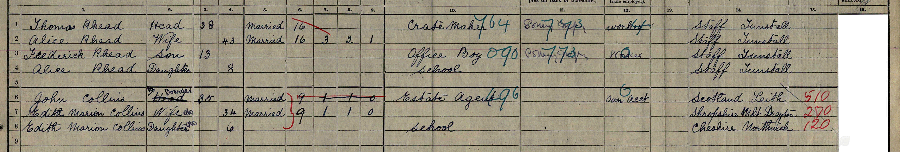 1 Thomas Rhead Head 38 Married 16 Crate Maker 764 worker Staff Tunstall
2 Alice Rhead Wife 43 Married 16 3 2 1 Staff Tunstall
3 Frederick Rhead Son 13 Office Boy 090 Staff Tunstall
4 Alice Rhead Daughter 8 School Staff Tunstall
5
6 John Collins Boarder Head 35 Married 9 1 1 0 Estate Agent 496 own acct Scotland Leith 510
7 Edith Marion Collins Wife do 34 Married 9 1 1 0 Shropshire Mkt Drayton 270
8 Edith Marion Collins Daughter do 6 school Cheshire Northwich 120
9